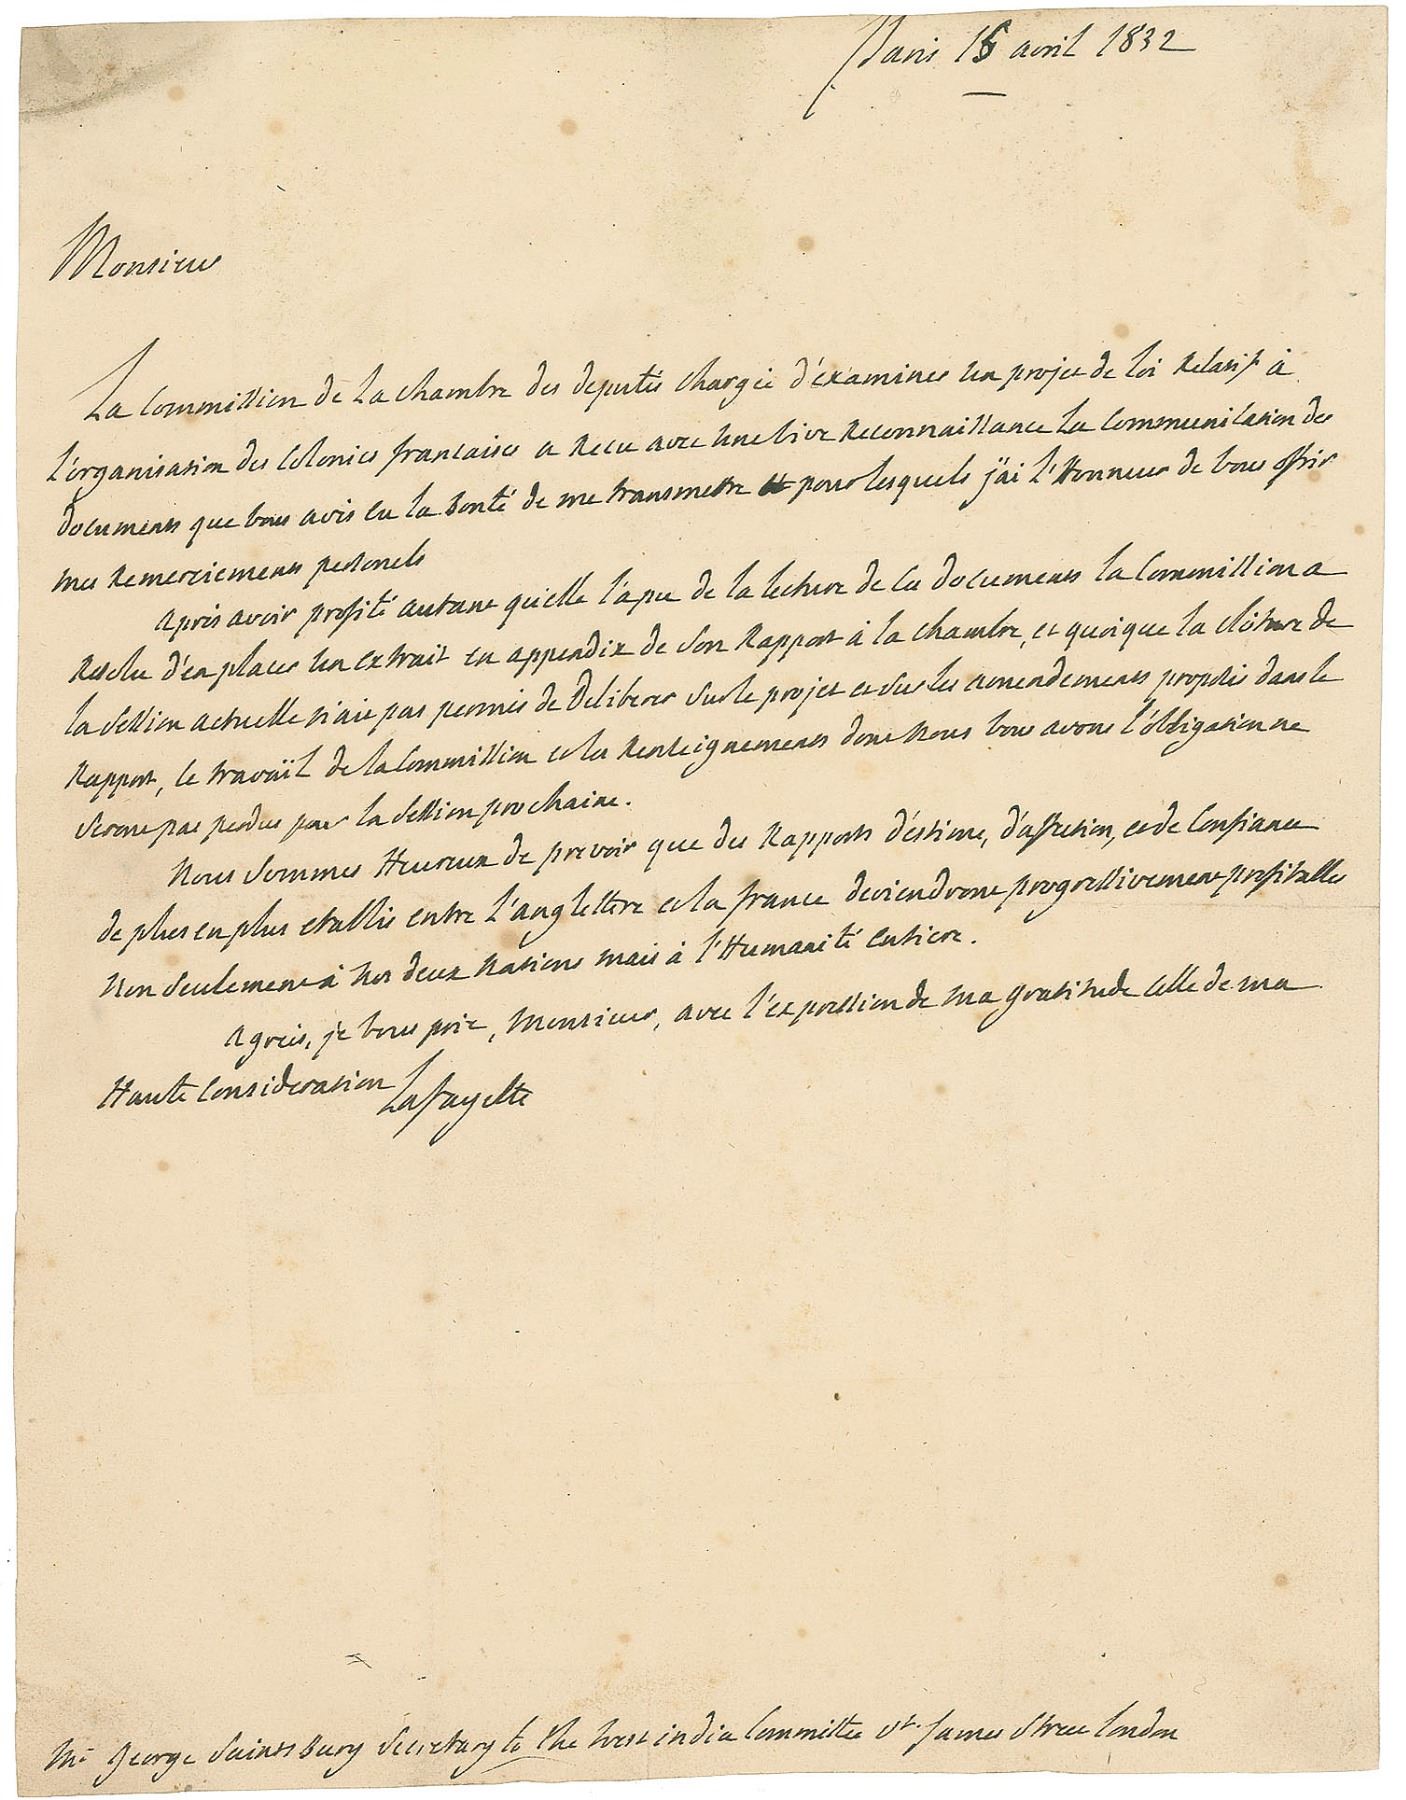 Paris 16 avril 1832
Monsieur
La Commission de La chambre des deputés chargée d'éxaminer un projet de loi Relatif à
l'organisation des Colonies francaises a Recu avec une vive Reconnaissance La Communication des
documents que vous avés eu la bonté de me transmettre et pour lesquels j'ai l'Honneur de vous offrir
mes Remerciements personels
après avoir profité autant qu'elle l'a pu de la lecture de ces documents la Commission a
Resolu d'en placer un extrait en appendix de son Rapport à la chambre, et quoique la clôture de
la session actuelle n'ait pas permis de Deliberer sur le projet et sur les amendements proposés dans le
Rapport, le travaïl de la Commission et les Renseignements dont Nous vous avons l'obligation ne
seront pas perdus pour la session prochaine.
Nous sommes Heureux de prevoir que des Rapports d'éstime, d'affection, et de Confiance
de plus en plus etablis entre l'anglettere et la france deviendront progressivement profitables
Non seulement à Nos deux Nations mais à l'Humanité entiere.
Agreés, je vous prie, Monsieur, avec l'expression de ma gratitude celle de ma
Haute Consideration Lafayette
Mr George Saintsbury Secretary to the West india Committee St. James Street London